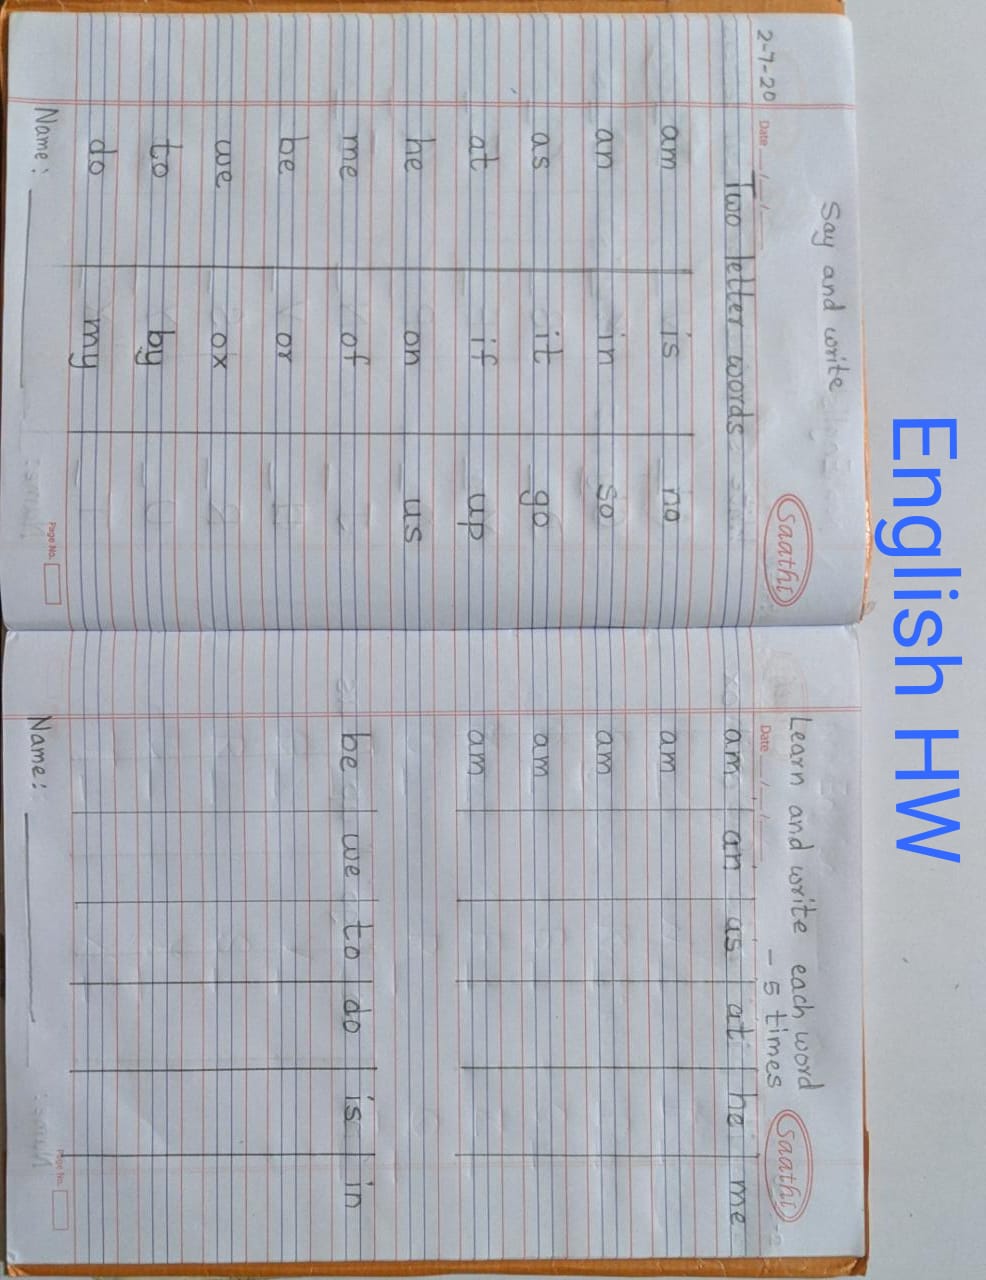 English HW
Say and write
saathi
2-7-20 Date
Two letter words
am is no
an in so
as it go
at if up
he on us
me of
be or
we ox
to by
do my
Name:
Page No.
Learn and write each word
- 5 times
saathi
Date
am an as at he me
am
am
am
am
be we to do is in
Name:
Page No.